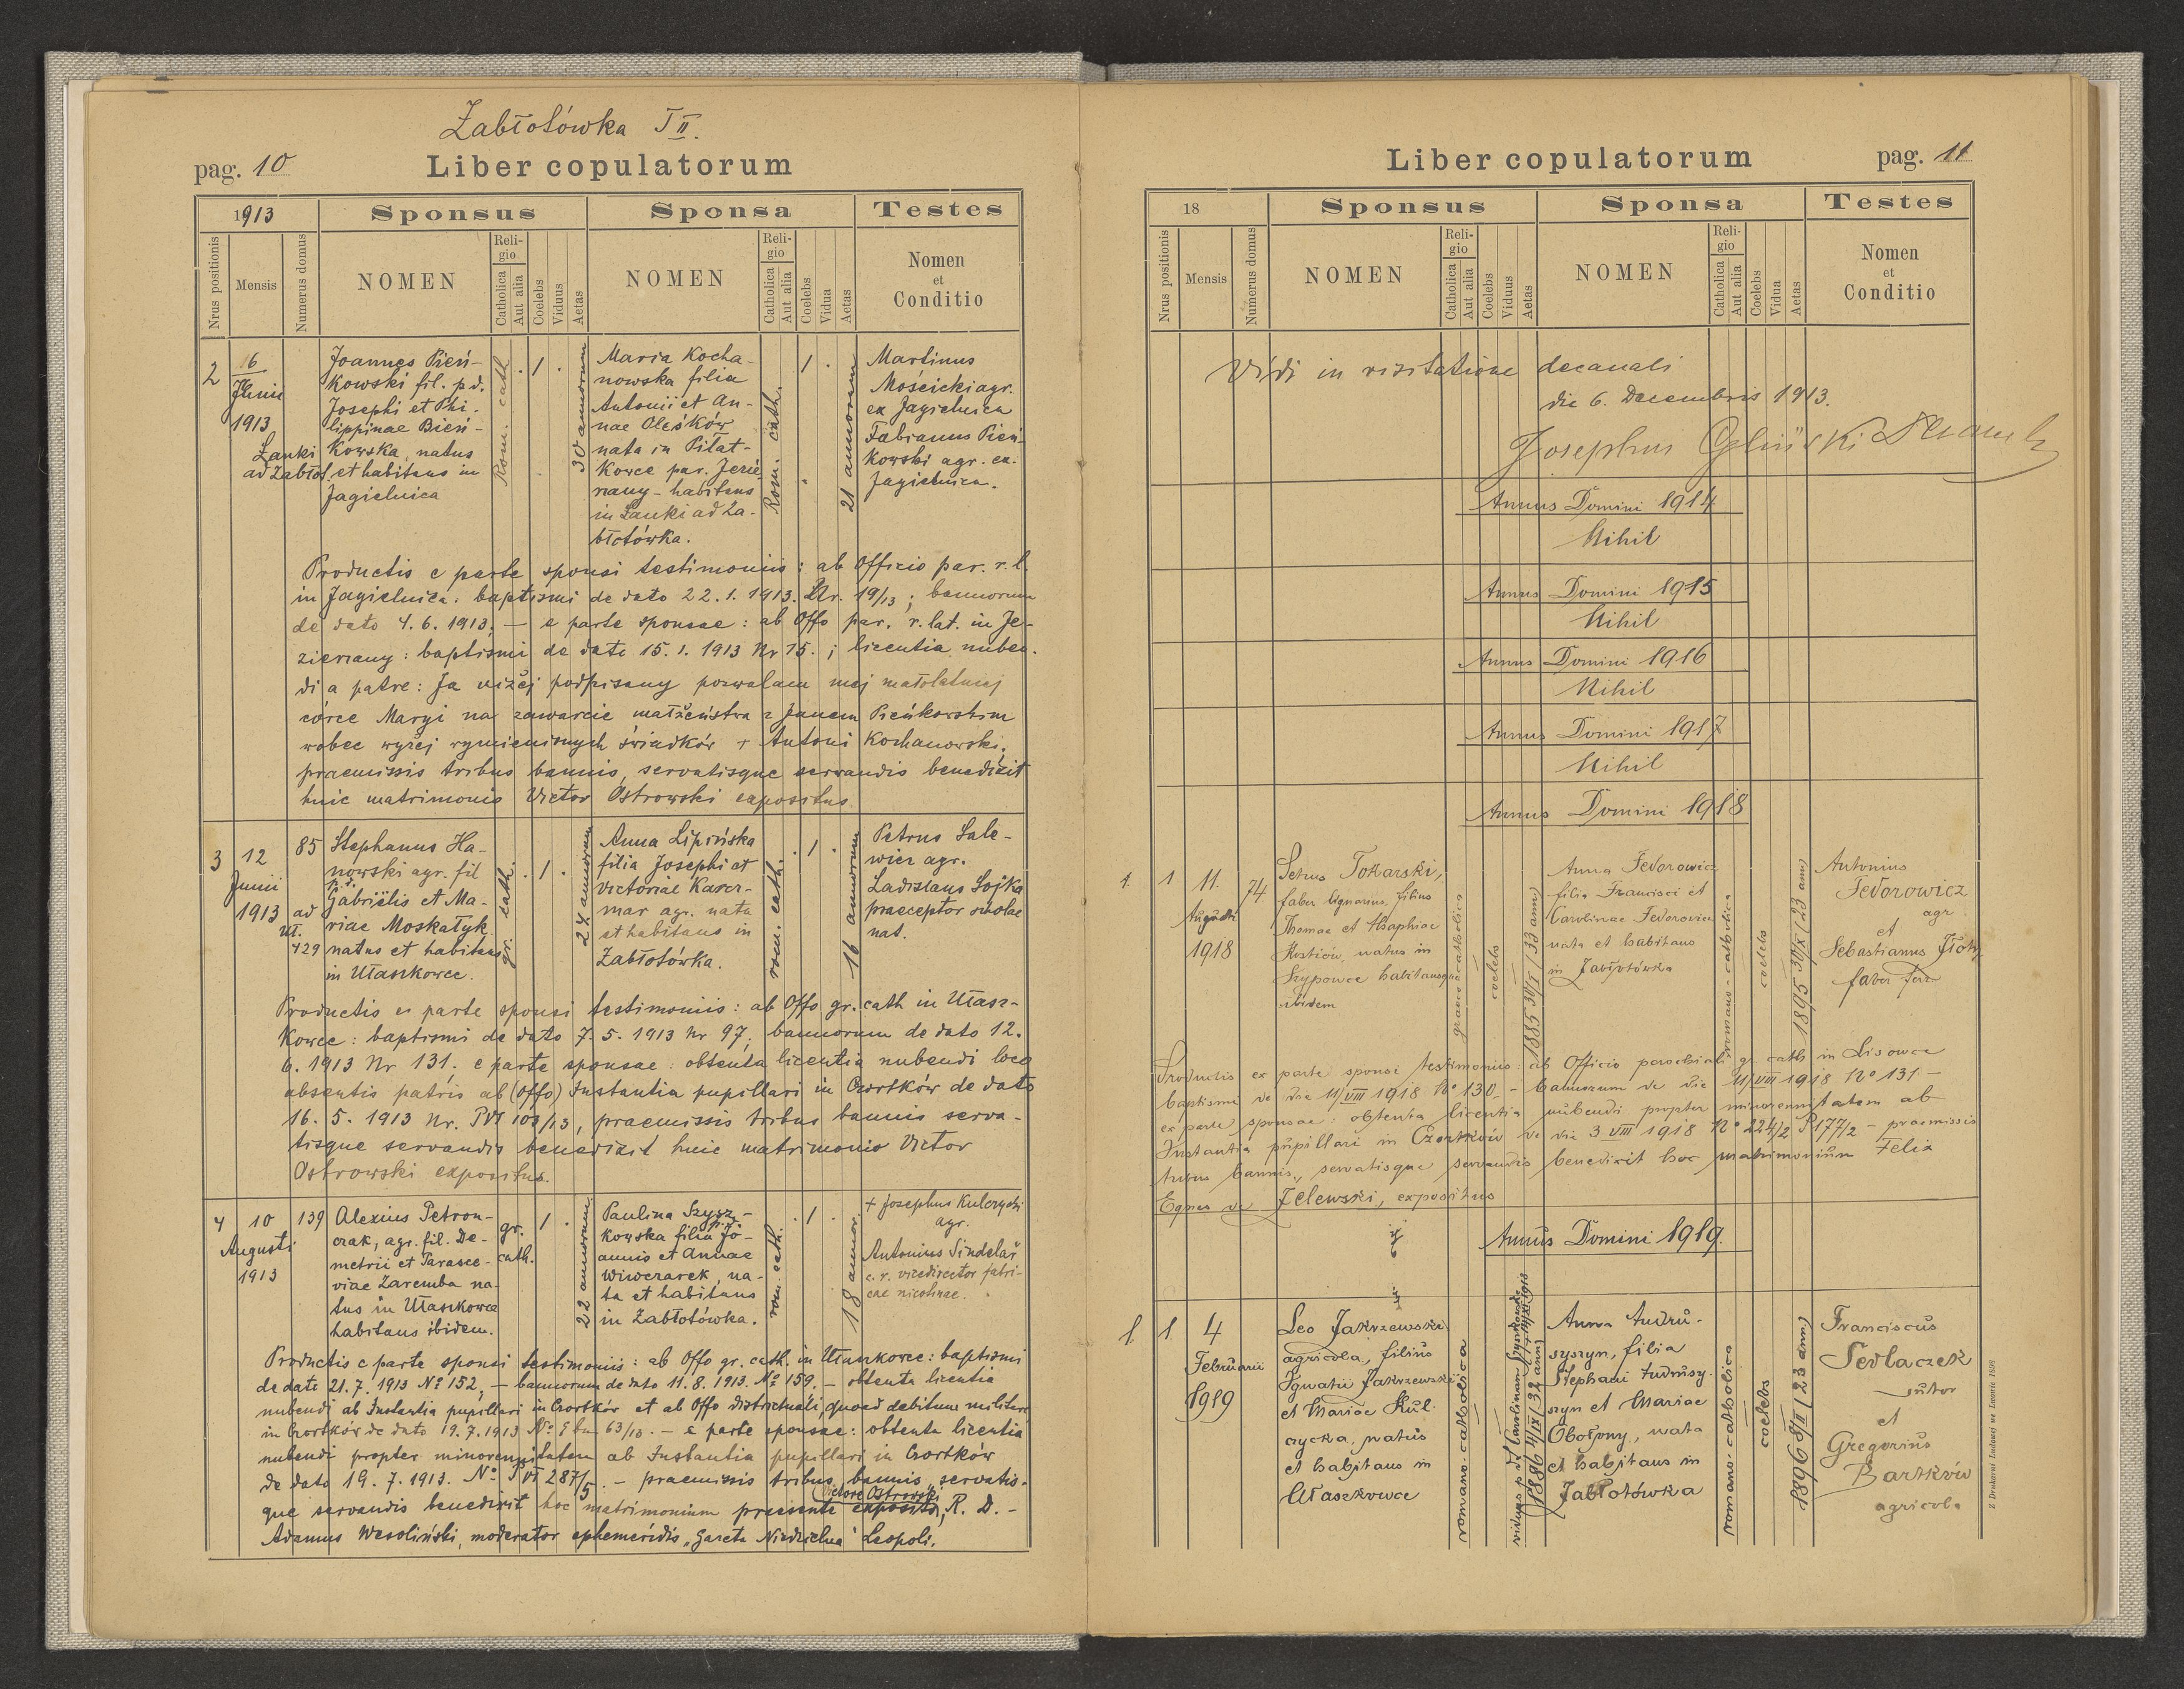 Zabłotówka T II.
pag. 10
Liber copulatorum
1913
Sponsus
Sponsa
Testes
Nrus positionis
Mensis
Numerus domus
NOMEN
Religio
Catholica
Aut alia
Coelebs
Viduus
Aetas
NOMEN
Religio
Catholica
Aut alia
Coelebs
Vidua
Aetas
Nomen
et
Conditio
2
16
Junii
1913
Łanki
ad Zabłot.
Joannes Pień-
kowski fil. p.d.
Josephi et Phi-
lippinae Bień-
kowska, natus
et habitans in
Jagielnica
Rom. cath.
1
30 annorum
Maria Kocha-
nowska filia
Antonii et An-
nae Oleśków
nata in Piłat-
kowce par. Jezie-
rzany - habitans
in Łanki ad Za-
błotówka.
Rom. cath.
1
21 annorum
Martinus
Mościcki agr.
ex Jagielnica
Fabianus Pień-
kowski agr. ex.
Jagielnica.
Productis e parte sponsi testimoniis: ab Officio par. r. l.
in Jagielnica: baptismi de dato 22. 1. 1913. Nr. 19/13; bannorum
de dato 4. 6. 1913; — e parte sponsae: ab Offo par. r. lat. in Je-
zierzany: baptismi de dato 15. 1. 1913 Nr 15. ; licentia nuben-
di a patre: Ja niżej podpisany pozwalam mej małoletniej
córce Maryi na zawarcie małżeństwa z Janem Pieńkowskim
wobec wyżej wymienionych świadków + Antoni Kochanowski,
praemissis tribus bannis, servatisque servandis benedixit
huic matrimonio Victor Ostrowski expositus.
3
12
Junii
1913
85
ad
Uł.
429
Stephanus Ha-
nowski agr. fil
p.d.
Gabriëlis et Ma-
riae Moskałyk
natus et habitans
in Ułaszkowce.
gr. cath.
1
24 annorum
Anna Lipińska
filia Josephi et
Victoriae Karcz-
mar agr. nata
et habitans in
Zabłotówka.
rom. cath.
1
16 annorum
Petrus Sale-
wicz agr.
Ladislaus Sojka
praeceptor scholae
nat.
Productis ex parte sponsi testimoniis: ab Offo gr. cath in Ułasz-
kowce: baptismi de dato 7. 5. 1913 Nr 97; bannorum de dato 12.
6. 1913 Nr 131. e parte sponsae: obtenta licentia nubendi loco
absentis patris ab (Offo) Instantia pupillari in Czortków de dato
16. 5. 1913 Nr. PVI 103/13, praemissis tribus bannis serva-
tisque servandis benedixit huic matrimonio Victor
Ostrowski expositus.
4
10
Augusti
1913
139
Alexius Petron-
czak, agr. fil. De-
metrii et Parasce-
viae Zaremba na-
tus in Ułaszkowce
habitans ibidem.
gr.
cath.
1
22 annorum
Paulina Szysz-
p.d.
kowska filia Jo-
annis et Annae
Wiwczarek, na-
ta et habitans
in Zabłotówka.
rom. cath.
1
18 annor.
+ Josephus Kulczycki
agr.
Antonius Sindelař
c. r. vicedirector fabri-
cae nicotinae.
Productis e parte sponsi testimoniis: ab Offo gr. cath. in Ułaszkowce: baptismi
de dato 21. 7. 1913 No 152, — bannorum de dato 11. 8. 1913. No 159. — obtenta licentia
nubendi ab Instantia pupillari in Czortków et ab Offo districtuali, quoad debitum militare
in Czortków de dato 19. 7. 1913 63/13. — e parte sponsae: obtenta licentia
nubendi propter minorennitatem ab Instantia pupillari in Czortków
de dato 19. 7. 1913. No P VI 287/5. — praemissis tribus bannis, servatis-
Victore Ostrowski
que servandis benedixit hoc matrimonium praesente exposito, R. D. —
Adamus Wesoliński, moderator ephemeridis „Gazeta Niedzielna" Leopoli.
Liber copulatorum
pag. 11
18
Sponsus
Sponsa
Testes
Nrus positionis
Mensis
Numerus domus
NOMEN
Religio
Catholica
Aut alia
Coelebs
Viduus
Aetas
NOMEN
Religio
Catholica
Aut alia
Coelebs
Vidua
Aetas
Nomen
et
Conditio
Vidi in visitatione decanali
die 6. Decembris 1913.
Josephus
Annus Domini 1914
Nihil
Annus Domini 1915
Nihil
Annus Domini 1916
Nihil
Annus Domini 1917
Nihil
Annus Domini 1918
1.
1
11.
Augusti
1918
74
Petrus Tokarski,
faber lignarius, filius
Thomae et Maphiae
Kostiów, natus in
Szypowce habitansque
ibidem
graeco catholica
coelebs
1885 30/VI (33 ann)
Anna Fedorowicz
filia Francisci et
Carolinae Fedorowicz
nata et habitans
in Zabłotówka
romano-catholica
coelebs
1895 30/X (23 ann)
Antonius
Fedorowicz
agr
et
Sebastianus
faber ferr
Productis ex parte sponsi testimoniis: ab Officio parochiali gr. cath in Lisowce
baptismi de die 11/VIII 1918 No 130 - bannorum de die 11/VIII 1918 No 131 —
ex parte sponsae: obtenta licentia nubendi propter minorennitatem ab
Instantia pupillari in Czortków de die 3 VIII 1918 No 224/2 P 177/2 - praemissis
tribus bannis, servatisque servandis benedixit hoc matrimonium Felix
Eques de Zelewski, expositus
Annus Domini 1919.
1
1.
4
Februarii
1919
Leo Zakrzewski
agricola, filius
Ignatii Zakrzewski
et Mariae Kul-
czycka, natus
et habitans in
Ułaszkowce
romano-catholica
1886 4/IX (32 ann)
Anna Andru-
syszyn, filia
Stephani Andrusy-
szyn et Mariae
Obołony, nata
et habitans in
Zabłotówka
romano-catholica
coelebs
1896 8/II (23 ann)
Franciscus
Sedlaczek
sutor
et
Gregorius
Bartków
agricola
Z Drukarni Ludowej we Lwowie 1898